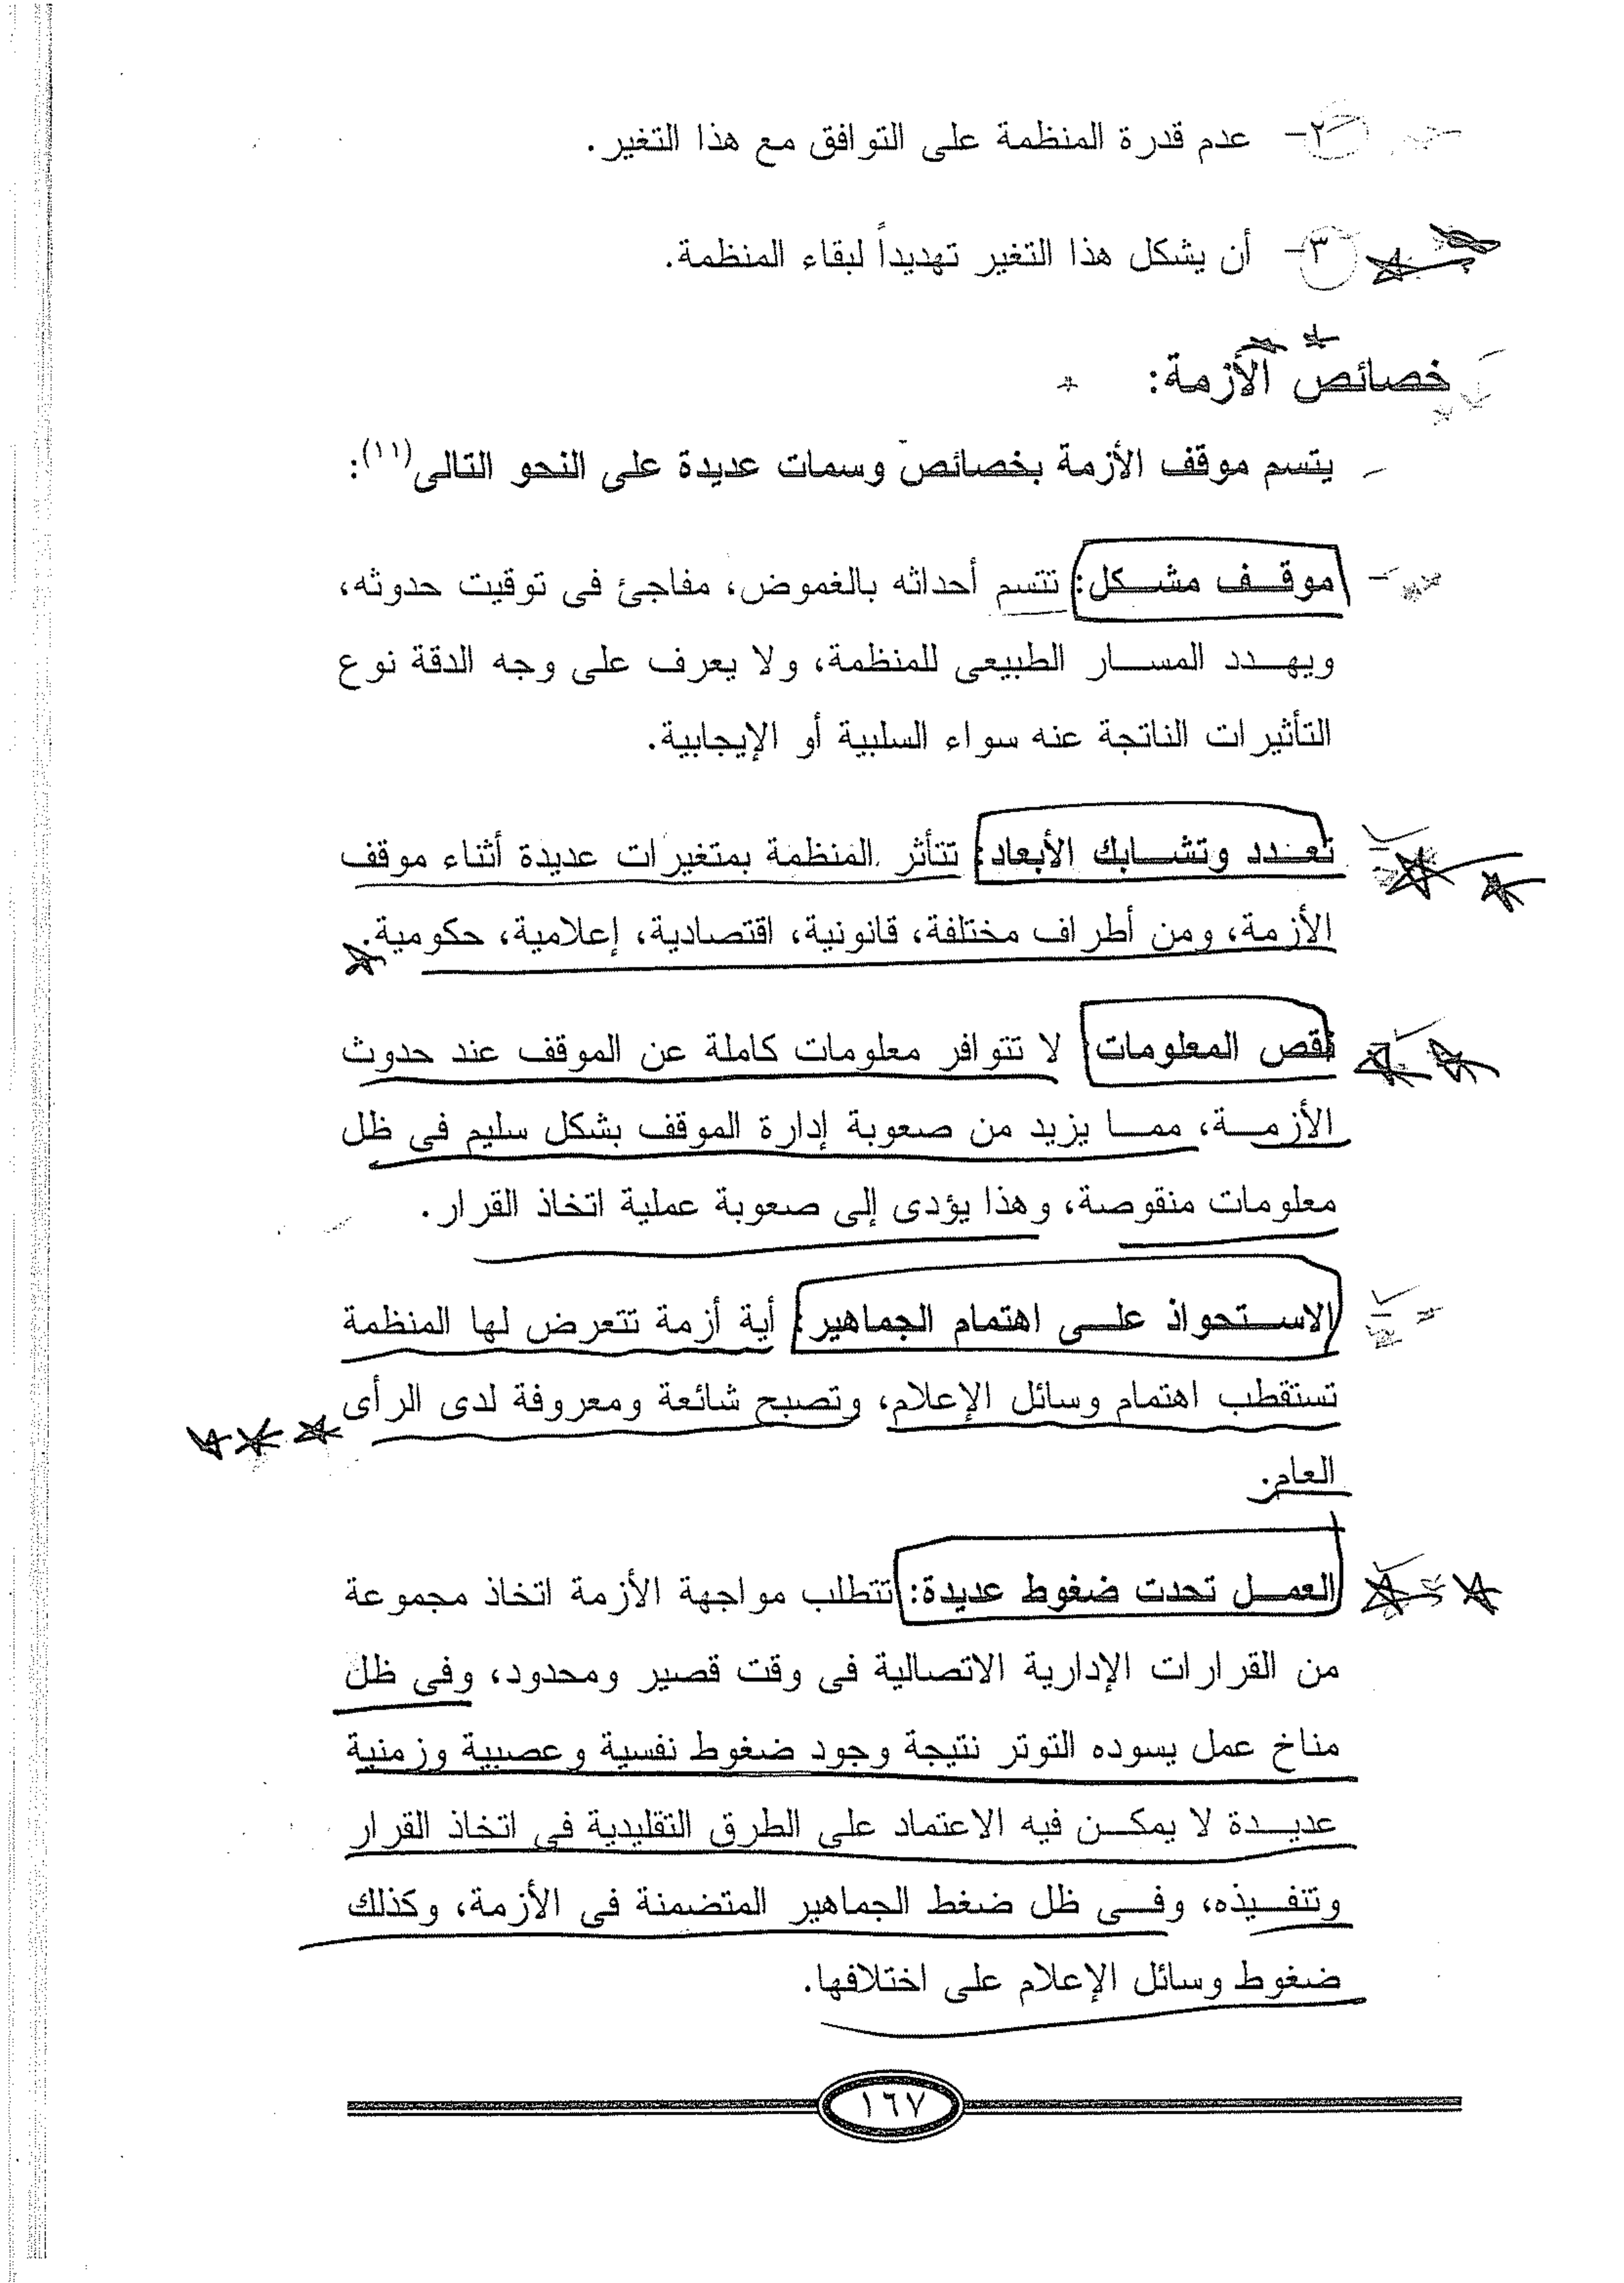 ٢- عدم قدرة المنظمة على التوافق مع هذا التغير.
٣- أن يشكل هذا التغير تهديداً لبقاء المنظمة.
خصائص الأزمة:
يتسم موقف الأزمة بخصائص وسمات عديدة على النحو التالى(١١):
موقف مشكل: تتسم أحداثه بالغموض، مفاجئ فى توقيت حدوثه،
ويهدد المسار الطبيعى للمنظمة، ولا يعرف على وجه الدقة نوع
التأثيرات الناتجة عنه سواء السلبية أو الإيجابية.
تعدد وتشابك الأبعاد: تتأثر المنظمة بمتغيرات عديدة أثناء موقف
الأزمة، ومن أطراف مختلفة، قانونية، اقتصادية، إعلامية، حكومية.
نقص المعلومات: لا تتوافر معلومات كاملة عن الموقف عند حدوث
الأزمة، مما يزيد من صعوبة إدارة الموقف بشكل سليم فى ظل
معلومات منقوصة، وهذا يؤدى إلى صعوبة عملية اتخاذ القرار.
الاستحواذ على اهتمام الجماهير: أية أزمة تتعرض لها المنظمة
تستقطب اهتمام وسائل الإعلام، وتصبح شائعة ومعروفة لدى الرأى
العام.
العمل تحدت ضغوط عديدة: تتطلب مواجهة الأزمة اتخاذ مجموعة
من القرارات الإدارية الاتصالية فى وقت قصير ومحدود، وفى ظل
مناخ عمل يسوده التوتر نتيجة وجود ضغوط نفسية وعصبية وزمنية
عديدة لا يمكن فيه الاعتماد على الطرق التقليدية فى اتخاذ القرار
وتنفيذه، وفى ظل ضغط الجماهير المتضمنة فى الأزمة، وكذلك
ضغوط وسائل الإعلام على اختلافها.
١٦٧